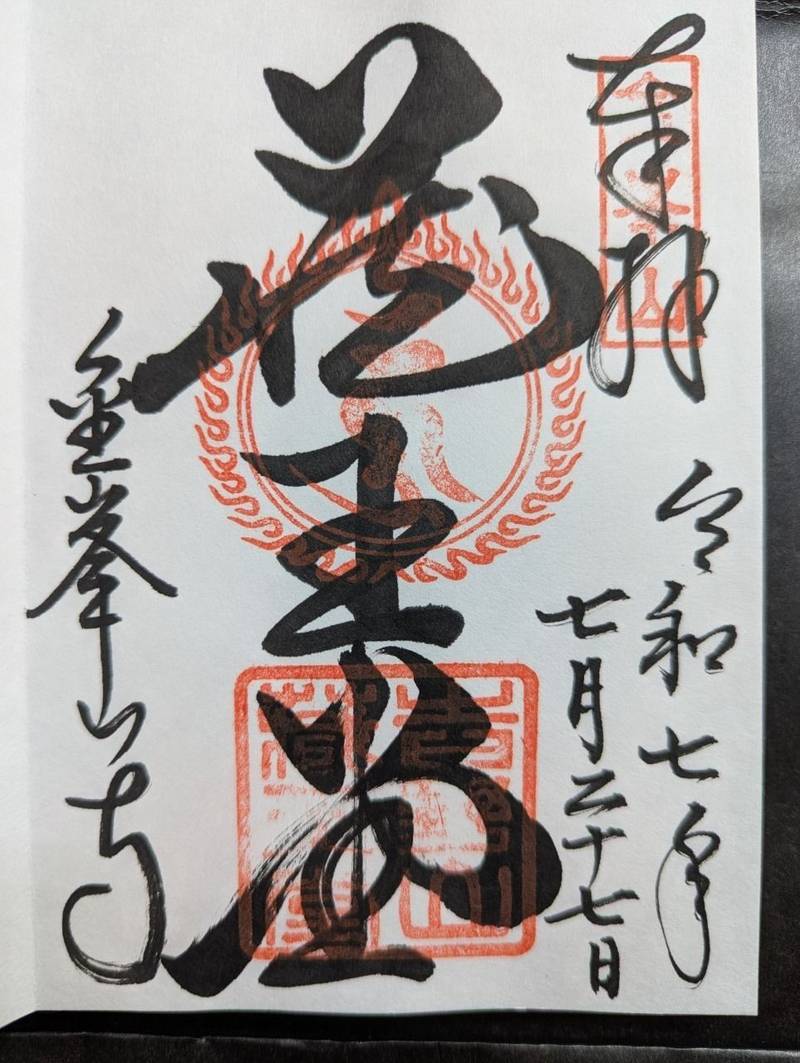 奉拝
令和七年
七月二十七日
蔵王堂
金峯山寺